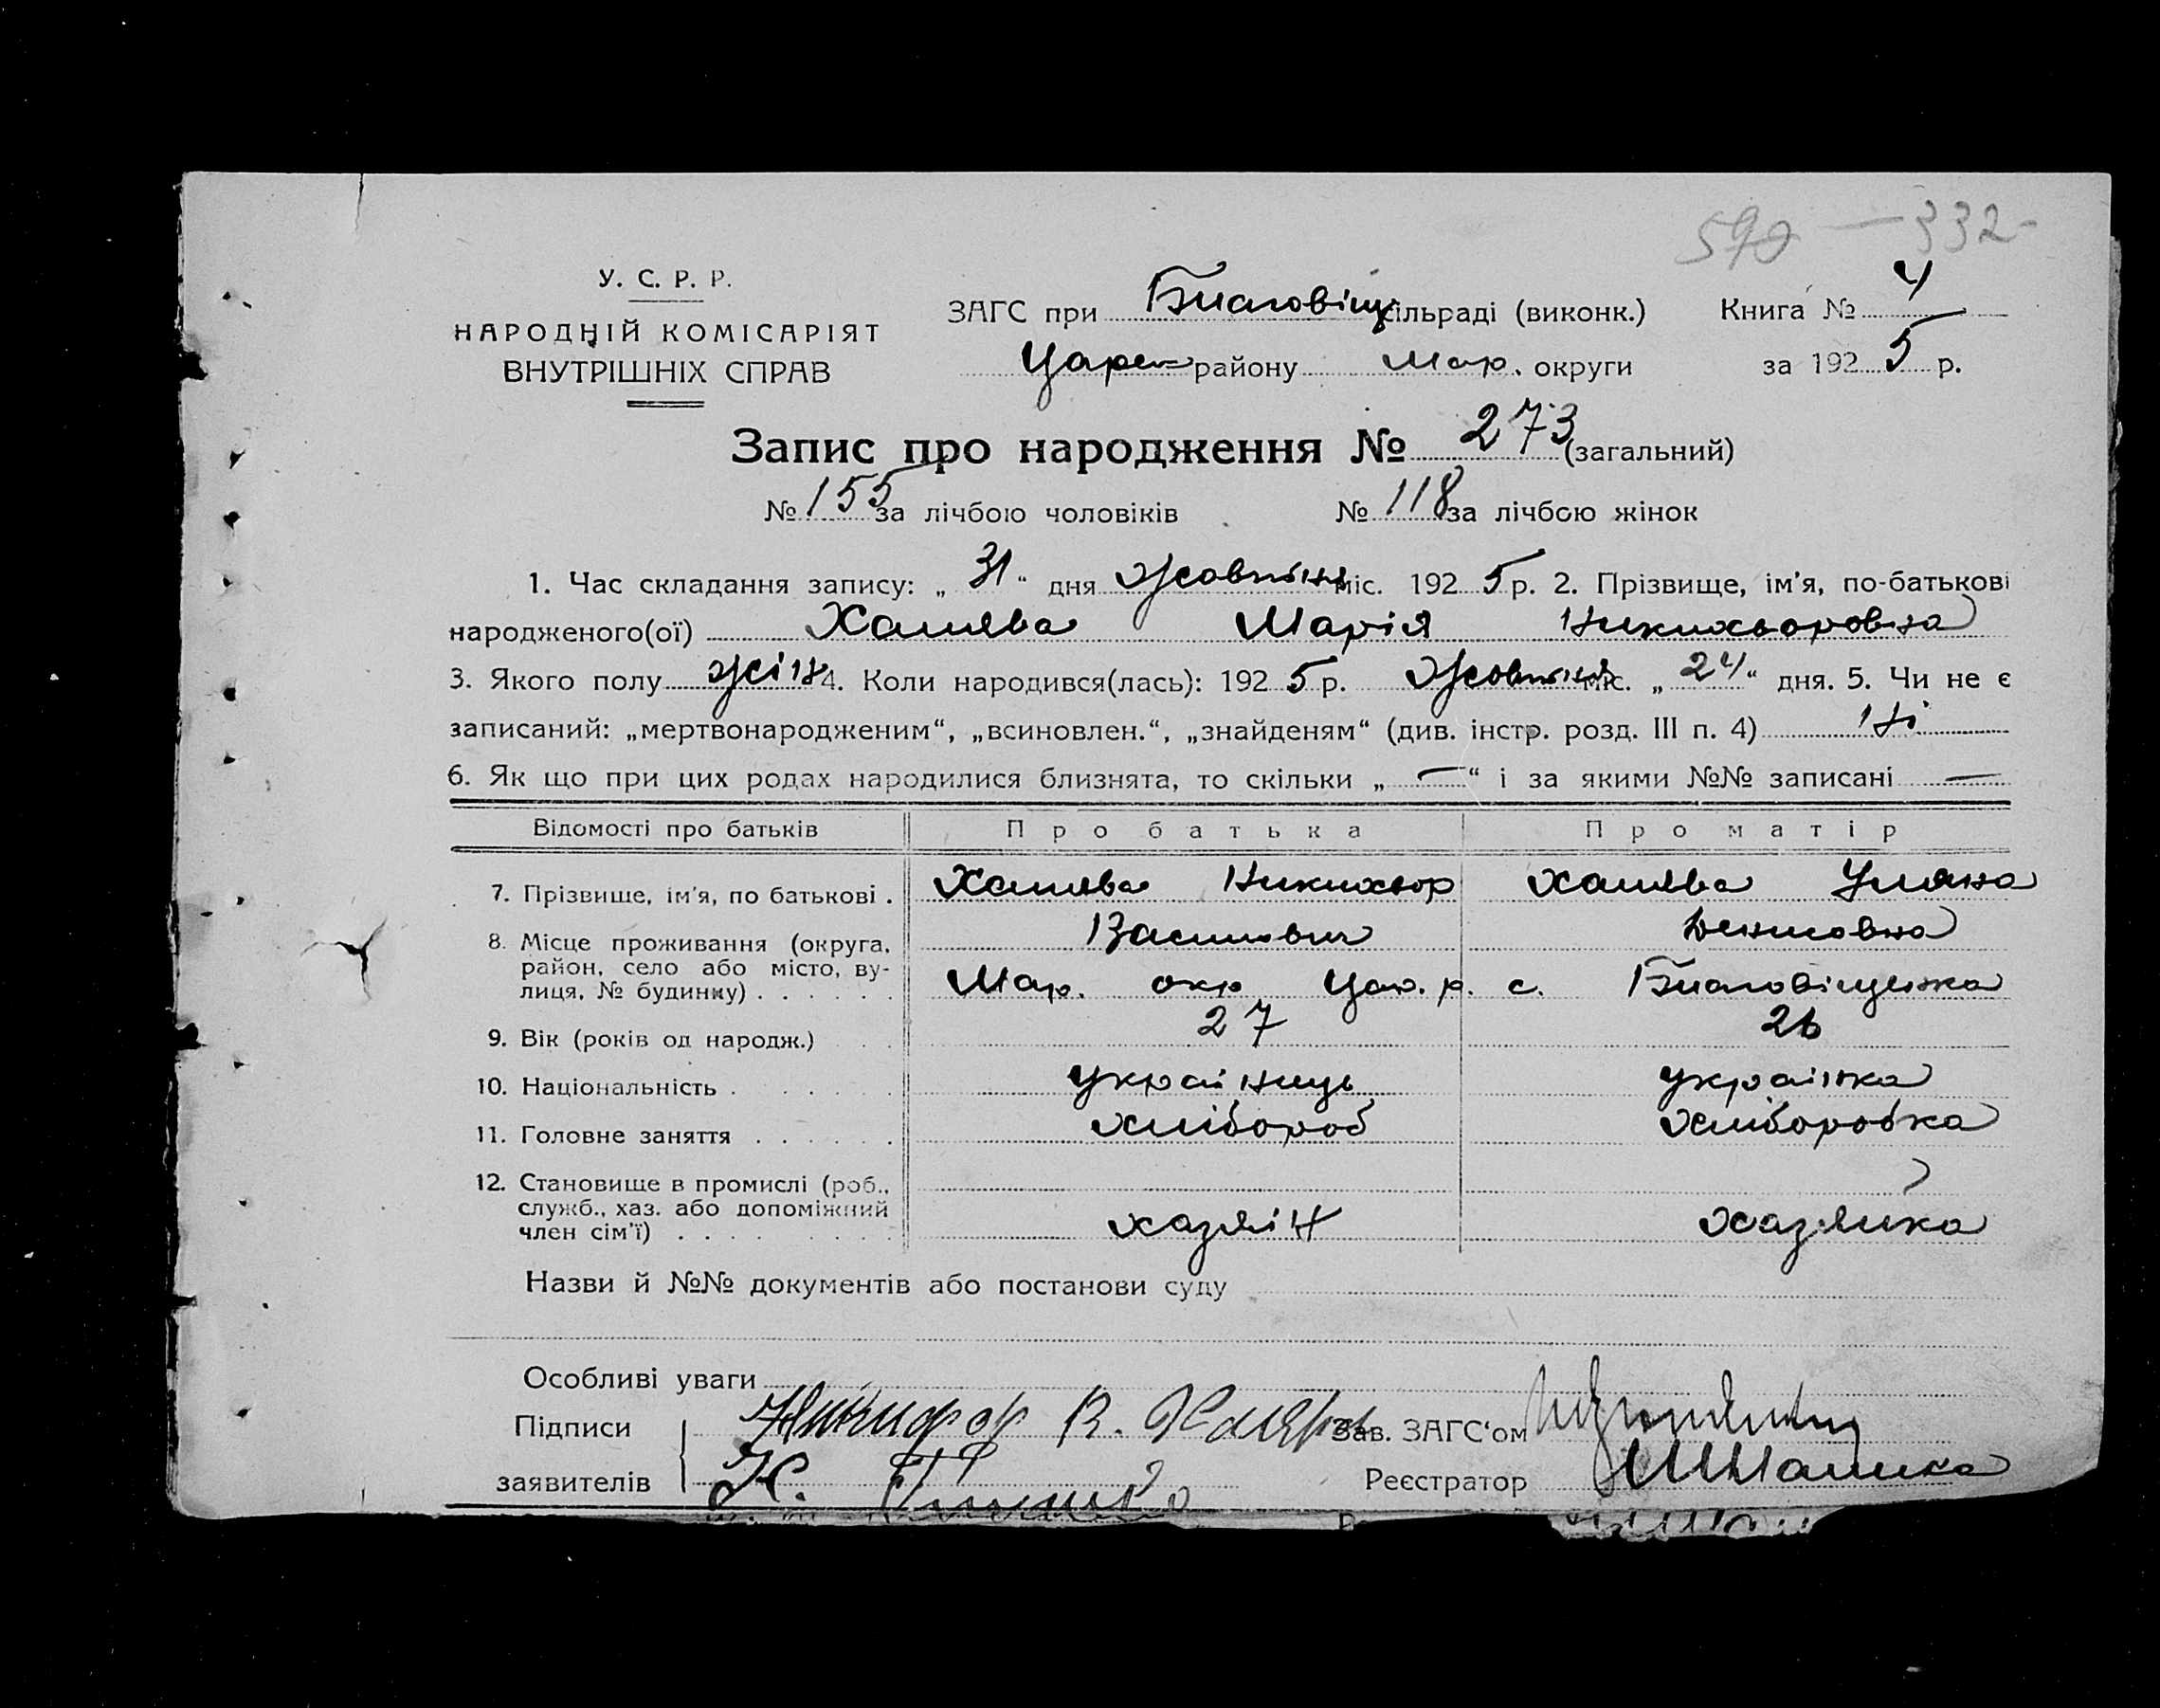 590 — 332
У. С. Р. Р.
НАРОДНІЙ КОМІСАРІЯТ
ВНУТРІШНІХ СПРАВ
ЗАГС при Благовіщ сільраді (виконк.) Книга № 4
Царек району Мар. округи за 1925 р.
Запис про народження № 273 (загальний)
№ 155 за лічбою чоловіків № 118 за лічбою жінок
1. Час складання запису: „ 31 “ дня жовтня міс. 1925 р. 2. Прізвище, ім’я, по-батькові
народженого(ої) Халява Марія Никихворовна
3. Якого полу жін 4. Коли народився(лась): 1925 р. жовтня міс. „ 24 “ дня. 5. Чи не є
записаний: „мертвонародженим“, „всиновлен.“, „знайденям“ (див. інстр. розд. III п. 4) ні
6. Як що при цих родах народилися близнята, то скільки „ — “ і за якими №№ записані —
Відомості про батьків Про батька Про матір
7. Прізвище, ім’я, по батькові . Халява Никихвор Халява Уляна
Василович Денисовна
8. Місце проживання (округа,
район, село або місто, ву-
лиця, № будинку) . . . . . . Мар. окр Цар. р. с. Благовіщенка
9. Вік (років од народж.) . . 27 26
10. Національність . . . . . . українць українка
11. Головне заняття . . . . . . хлібороб хліборобка
12. Становище в промислі (роб.,
служб., хаз. або допоміжний
член сім’ї) . . . . . . . . хазяін хазяйка
Назви й №№ документів або постанови суду
Особливі уваги
Підписи Никифор В. Халява Зав. ЗАГС‘ом
заявителів Реєстратор